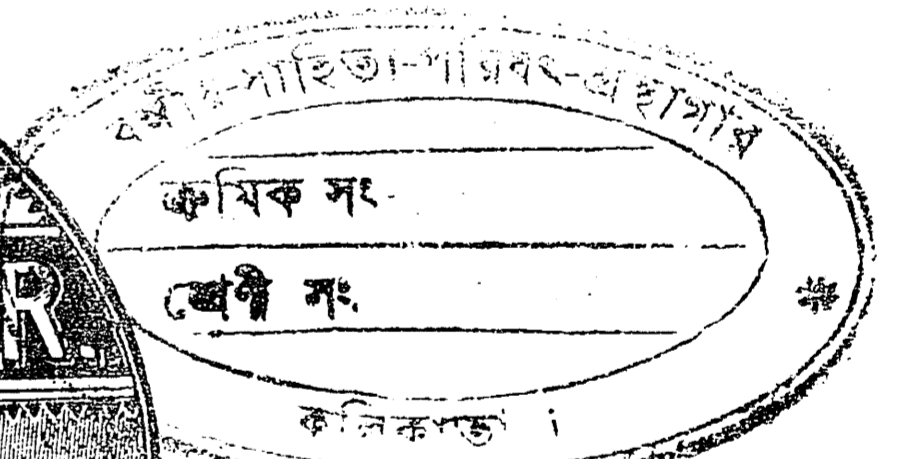 বঙ্গীয়-সাহিত্য-পরিষৎ-গ্রন্থাগার
ক্রমিক সং
শ্রেণী সং
কলিকাতা ।
R.